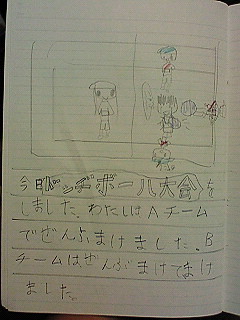 今日ドッヂボール大会を
しました。わたしはAチーム
でぜんぶまけました。B
チームはぜんぶまけてまけ
ました。